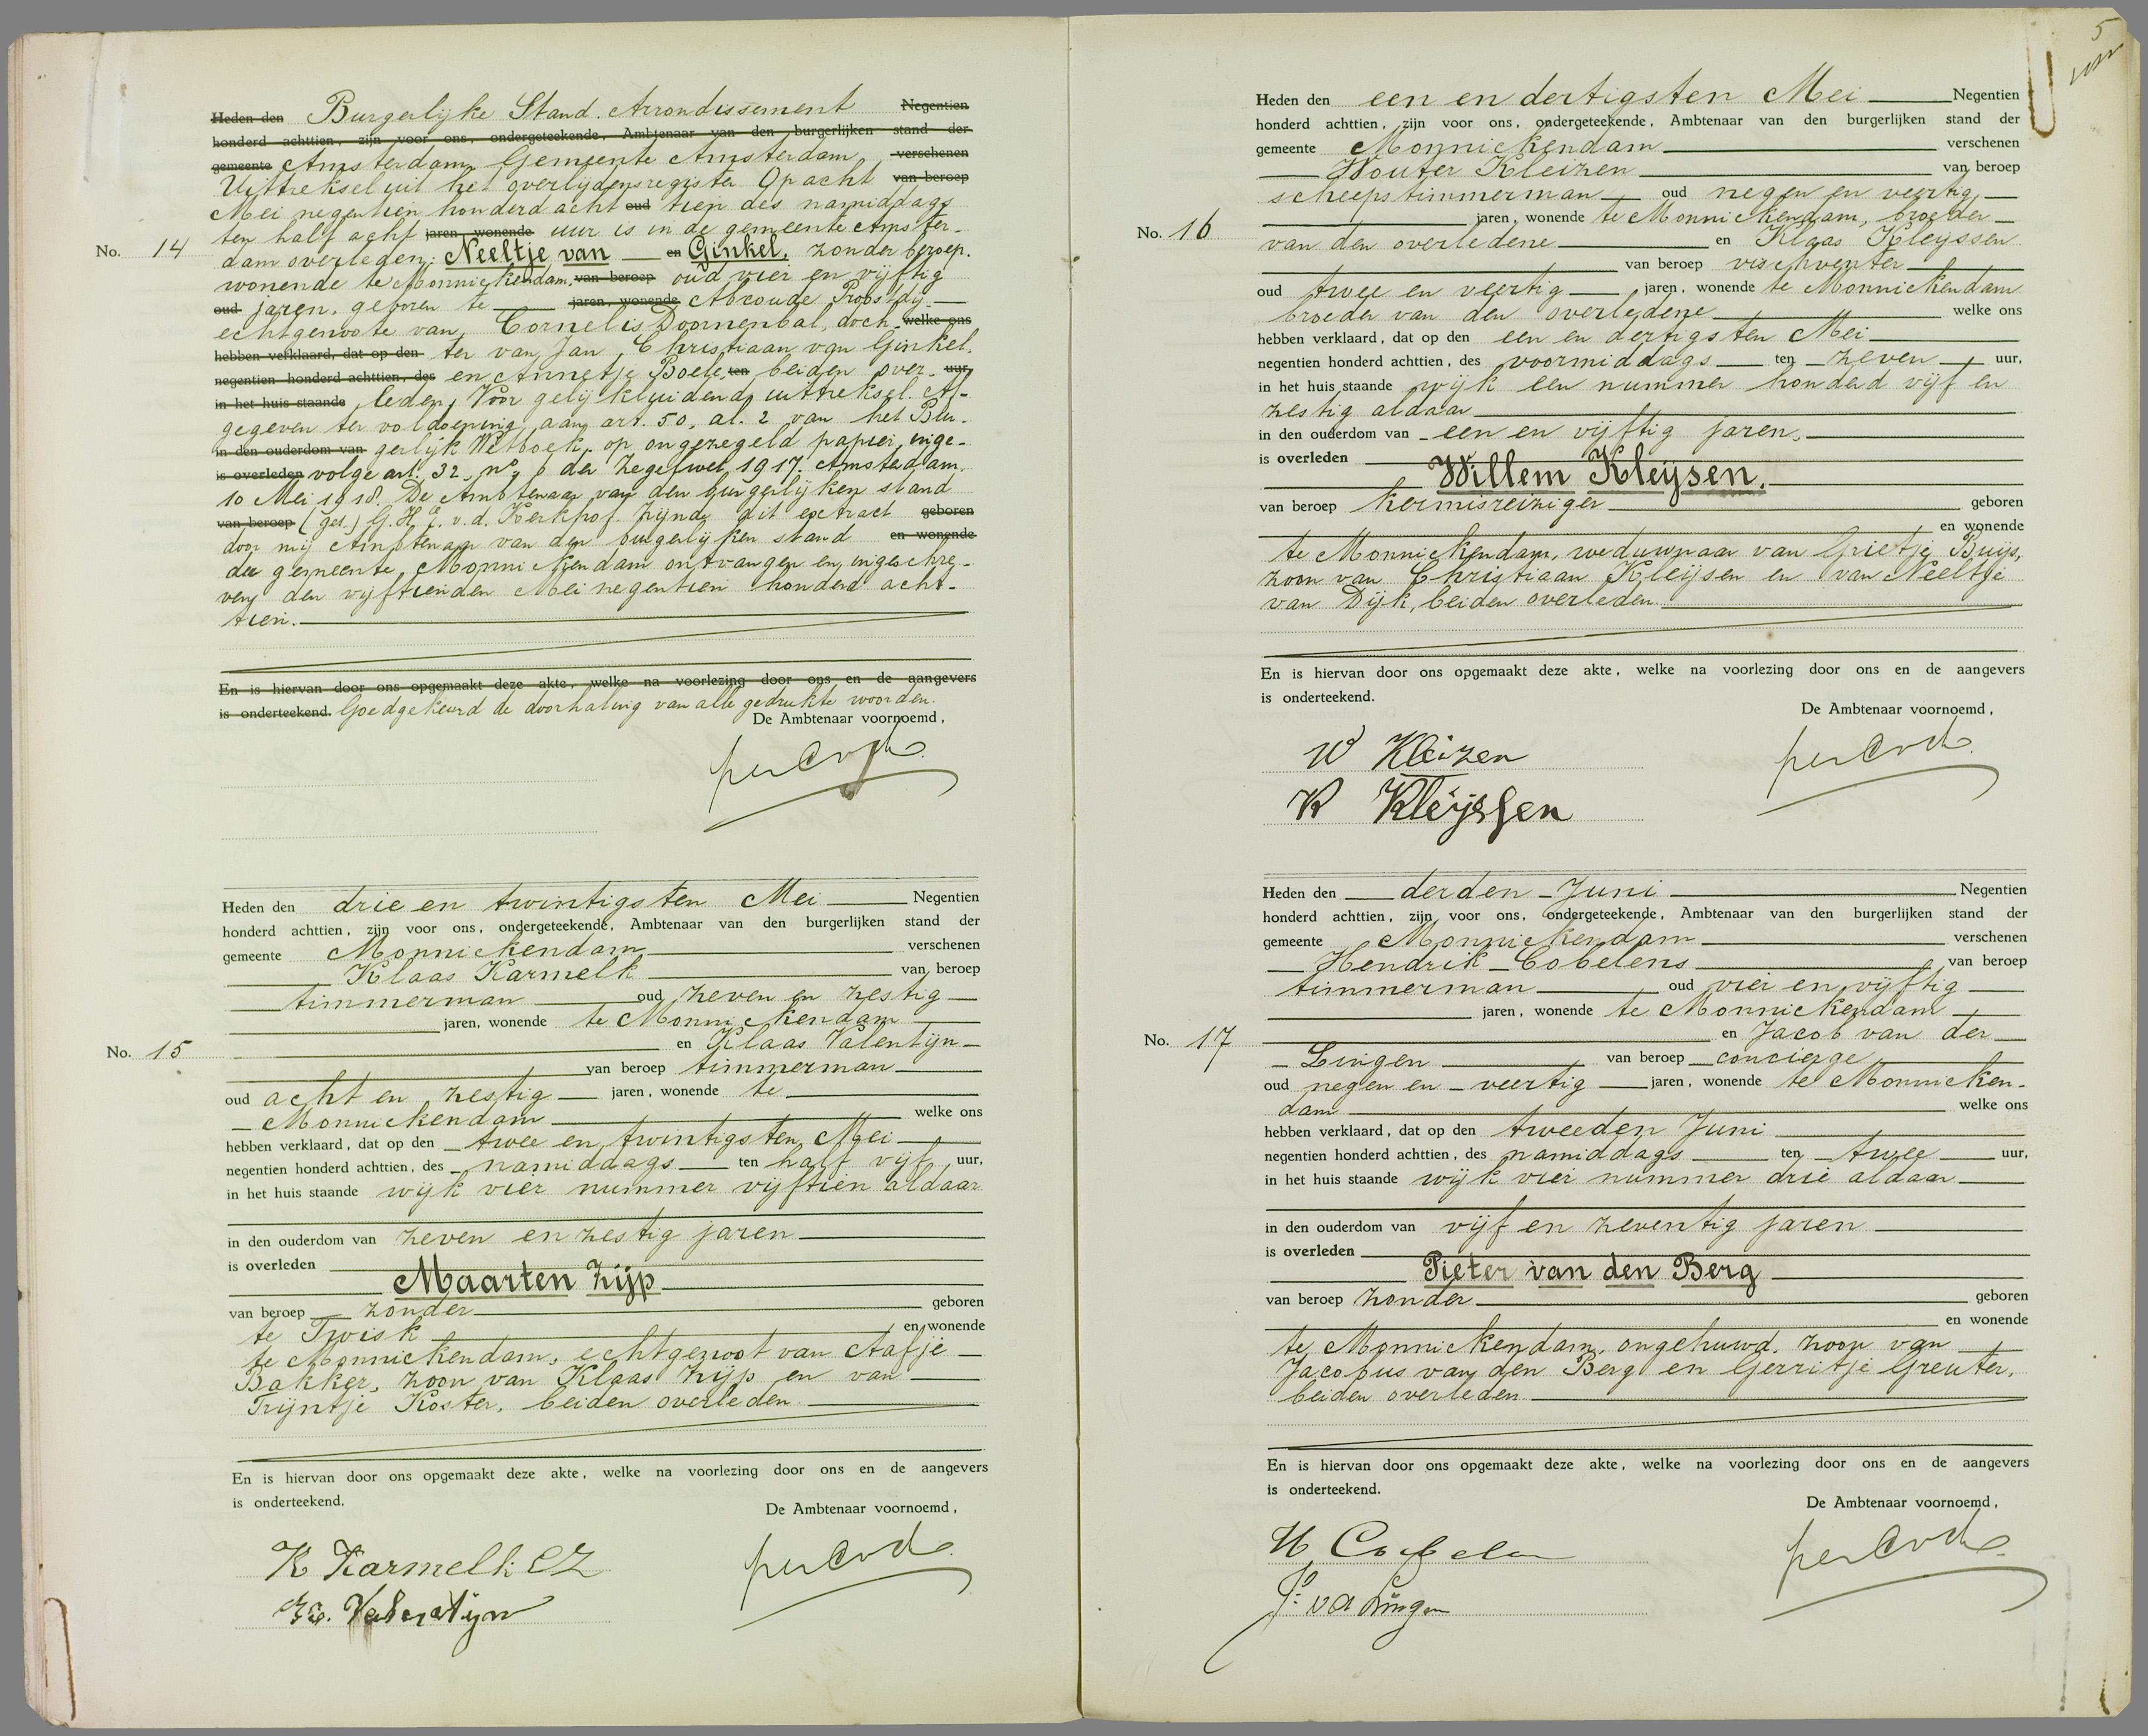 Heden den Burgerlijke Stand. Arrondissement Negentien
honderd achttien, zijn voor ons, ondergeteekende, Ambtenaar van den burgerlijken stand der
gemeente Amsterdam, Gemeente Amsterdam verschenen
Uittreksel uit het overlijdensregister Op acht van beroep
Mei negentien honderd acht oud tien des namiddags
ten half acht jaren, wonende uur is in de gemeente Amster-
No. 14 dam overleden: Neeltje van en Ginkel, zonder beroep.
wonende te Monnickendam, van beroep oud vier en vijftig
oud jaren, geboren te jaren, wonende Abcoude Proostdij
echtgenoote van Cornelis Doornenbal, doch- welke ons
hebben verklaard, dat op den ter van Jan Christiaan van Ginkel
negentien honderd achttien, des en Annetje Boele, ten beiden over- uur,
in het huis staande leden, Voor gelijkluidend uittreksel. Af-
gegeven ter voldoening aan art. 50, al. 2 van het Bur-
in den ouderdom van gerlijk Wetboek, op ongezegeld papier, inge-
is overleden volge art. 32, no. 6 der Zegelwet 1917. Amsterdam,
10 Mei 1918. De Ambtenaar van den burgerlijken stand
van beroep (get.) G.H.E. v.d. Kerkhof. Zijnde dit extract geboren
door mij Ambtenaar van den burgerlijken stand en wonende
der gemeente Monnickendam ontvangen en ingeschre-
ven den vijftienden Mei negentien honderd acht-
tien.
En is hiervan door ons opgemaakt deze akte, welke na voorlezing door ons en de aangevers
is onderteekend. Goedgekeurd de doorhaling van alle gedrukte woorden.
De Ambtenaar voornoemd,
Heden den drie en twintigsten Mei Negentien
honderd achttien, zijn voor ons, ondergeteekende, Ambtenaar van den burgerlijken stand der
gemeente Monnickendam verschenen
Klaas Karmelk van beroep
timmerman oud zeven en zestig
jaren, wonende te Monnickendam
No. 15 en Klaas Valentijn
van beroep timmerman
oud acht en zestig jaren, wonende te
Monnickendam welke ons
hebben verklaard, dat op den twee en twintigsten Mei
negentien honderd achttien, des namiddags ten half vijf uur,
in het huis staande wijk vier nummer vijftien aldaar
in den ouderdom van zeven en zestig jaren
is overleden
Maarten Zijp
van beroep zonder geboren
te Twisk en wonende
te Monnickendam, echtgenoot van Aafje
Bakker, zoon van Klaas Zijp en van
Trijntje Koster, beiden overleden
En is hiervan door ons opgemaakt deze akte, welke na voorlezing door ons en de aangevers
is onderteekend.
De Ambtenaar voornoemd,
K Karmelk CZ
Valentijn
5
Heden den een en dertigsten Mei Negentien
honderd achttien, zijn voor ons, ondergeteekende, Ambtenaar van den burgerlijken stand der
gemeente Monnickendam verschenen
Wouter Kleizen van beroep
scheepstimmerman oud negen en veertig
jaren, wonende te Monnickendam, broeder
No. 16 van den overledene en Klaas Kleijssen
van beroep vischventer
oud twee en veertig jaren, wonende te Monnickendam
broeder van den overledene welke ons
hebben verklaard, dat op den een en dertigsten Mei
negentien honderd achttien, des voormiddags ten zeven uur,
in het huis staande wijk een nummer honderd vijf en
zestig aldaar
in den ouderdom van een en vijftig jaren,
is overleden
Willem Kleijsen.
van beroep kermisreiziger geboren
en wonende
te Monnickendam, weduwnaar van Grietje Buijs,
zoon van Christiaan Kleijsen en van Neeltje
van Dijk, beiden overleden
En is hiervan door ons opgemaakt deze akte, welke na voorlezing door ons en de aangevers
is onderteekend.
De Ambtenaar voornoemd,
W Kleizen
K Kleijssen
Heden den derden Juni Negentien
honderd achttien, zijn voor ons, ondergeteekende, Ambtenaar van den burgerlijken stand der
gemeente Monnickendam verschenen
Hendrik Cobelens van beroep
timmerman oud vier en vijftig
jaren, wonende te Monnickendam
No. 17 en Jacob van der
Lingen van beroep concierge
oud negen en veertig jaren, wonende te Monnicken-
dam welke ons
hebben verklaard, dat op den tweeden Juni
negentien honderd achttien, des namiddags ten twee uur,
in het huis staande wijk vier nummer drie aldaar
in den ouderdom van vijf en zeventig jaren
is overleden
Pieter van den Berg
van beroep zonder geboren
en wonende
te Monnickendam, ongehuwd, zoon van
Jacobus van den Berg en Gerritje Greuter,
beiden overleden
En is hiervan door ons opgemaakt deze akte, welke na voorlezing door ons en de aangevers
is onderteekend.
De Ambtenaar voornoemd,